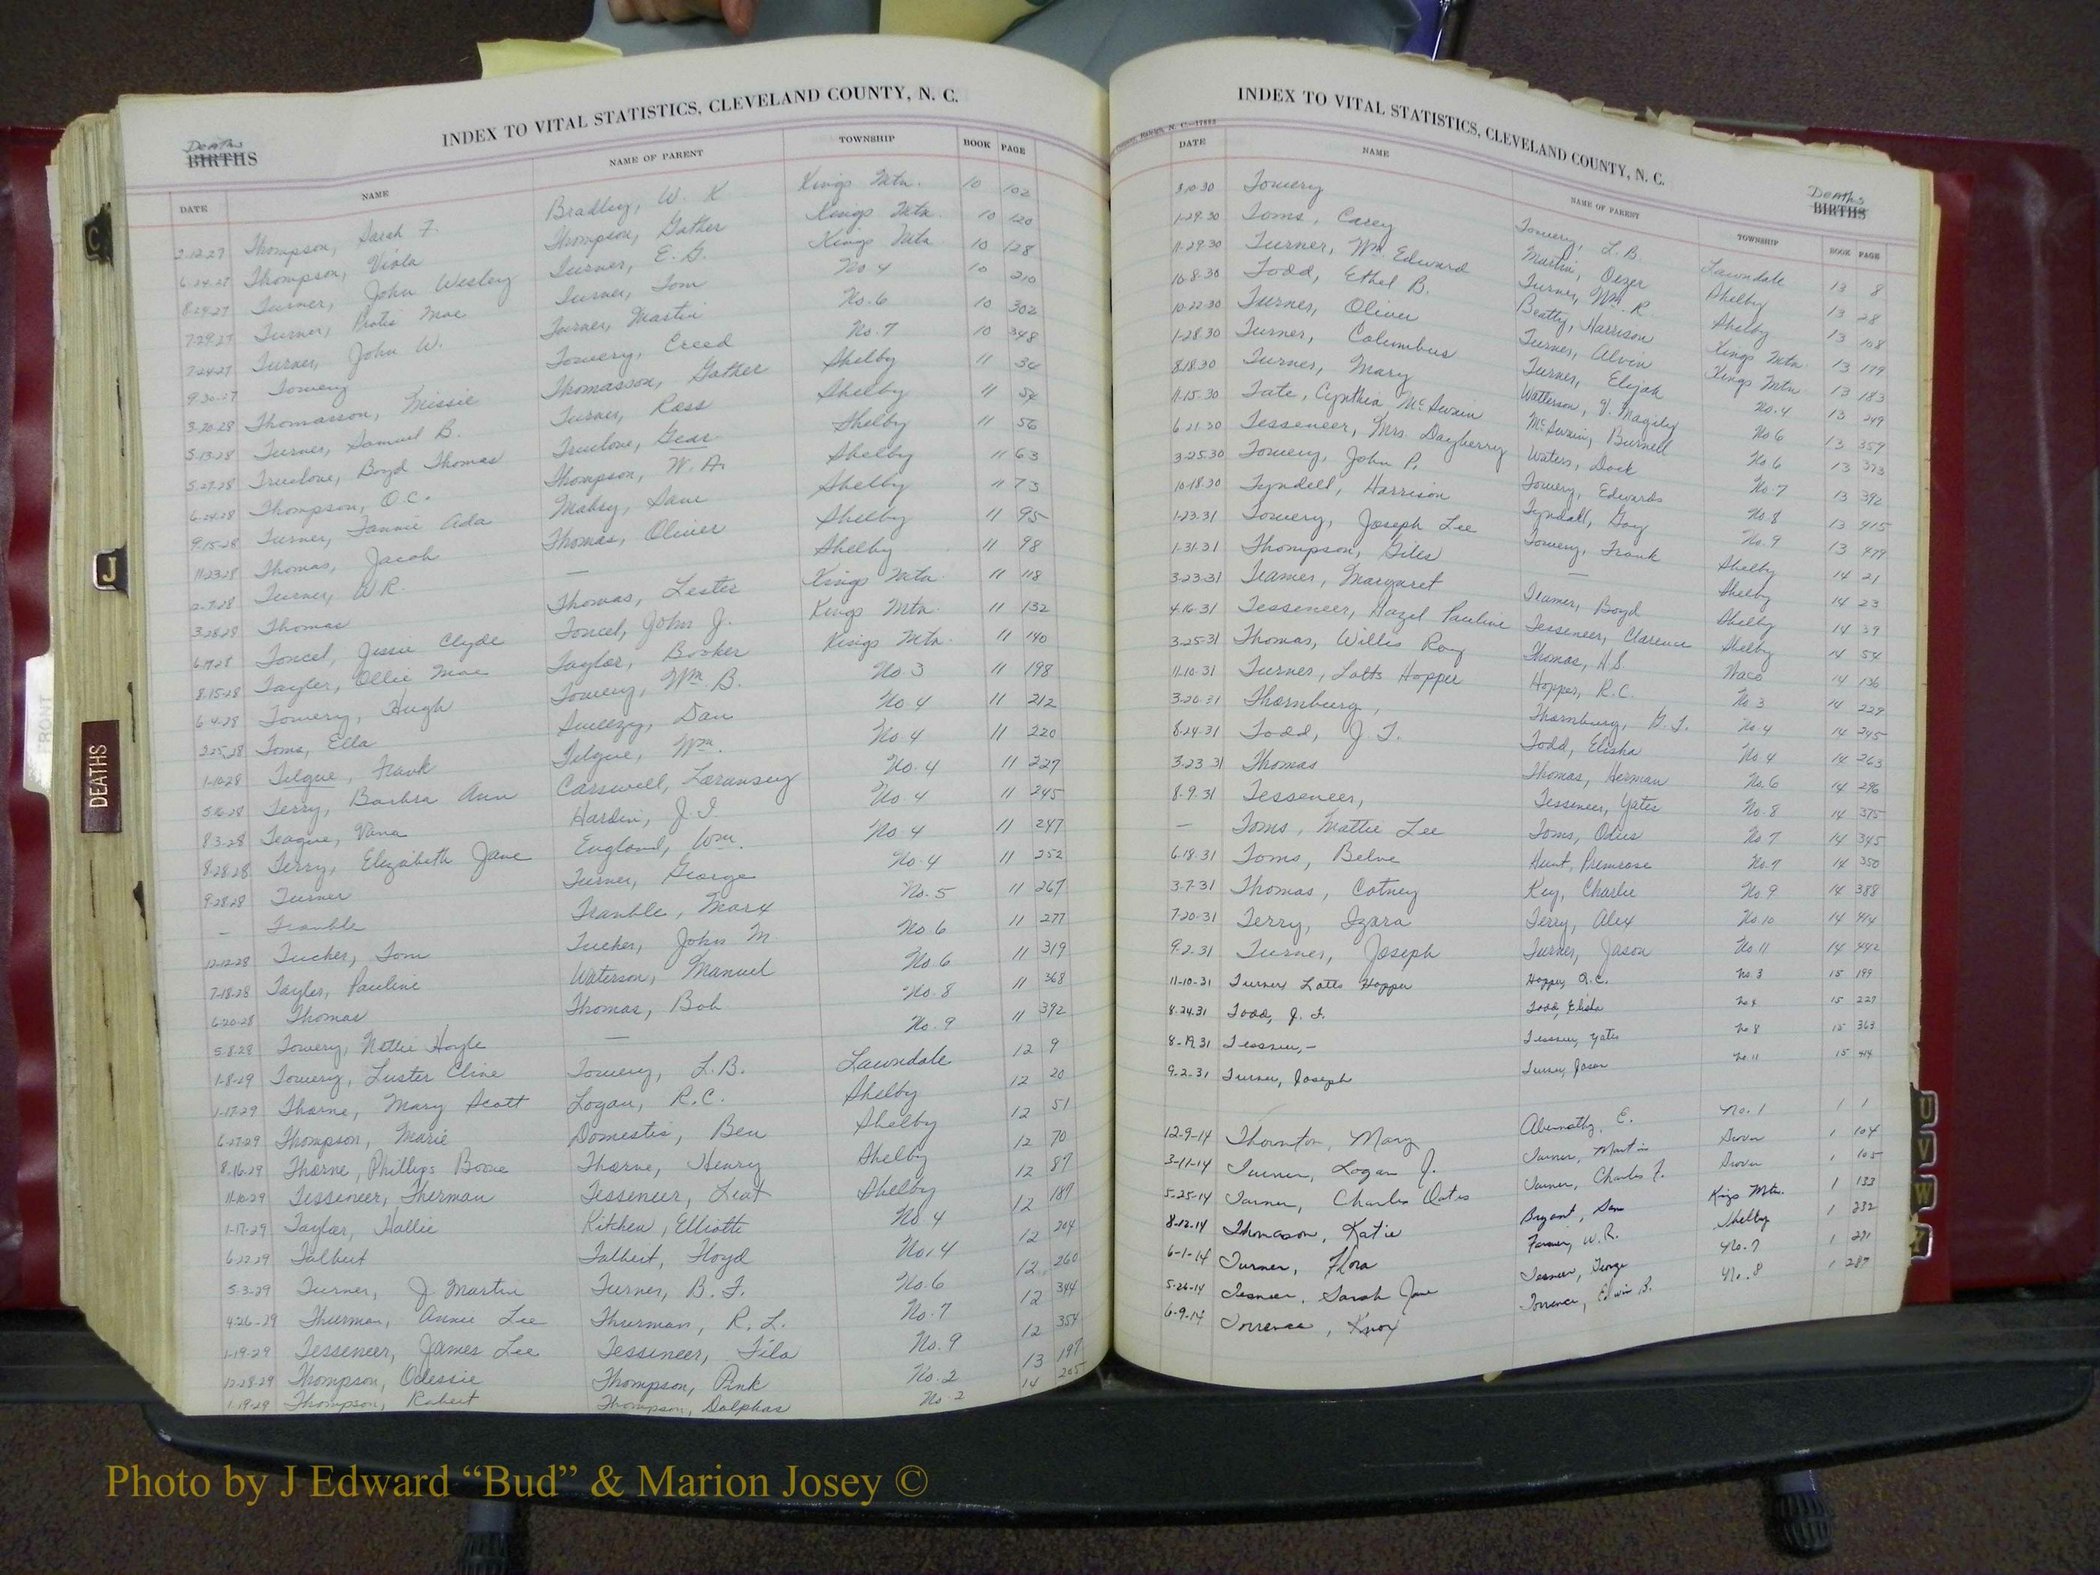 INDEX TO VITAL STATISTICS, CLEVELAND COUNTY, N. C.
Deaths
BIRTHS
DATE NAME NAME OF PARENT TOWNSHIP BOOK PAGE
2-12-27 Thompson, Sarah F. Bradley, W. K Kings Mtn. 10 102
6-24-27 Thompson, Viola Thompson, Gather Kings Mtn. 10 120
8-29-27 Turner, John Wesley Turner, E. G. Kings Mtn 10 128
7-29-27 Turner, Mae Turner, Tom No 4 10 210
7-24-27 Turner, John W. Turner, Martin No. 6 10 302
9-30-27 Towery Towery, Creed No. 7 10 348
3-20-28 Thomasson, Missie Thomasson, Gather Shelby 11 34
5-13-28 Turner, Samuel B. Turner, Ross Shelby 11 54
5-27-28 Truelove, Boyd Thomas Truelove, Gear Shelby 11 56
6-24-28 Thompson, O.C. Thompson, W. A. Shelby 11 63
9-15-28 Turner, Fannie Ada Mabry, Dave Shelby 11 73
11-23-28 Thomas, Jacob Thomas, Oliver Shelby 11 95
2-7-28 Turner, W.R. — Shelby 11 98
3-28-28 Thomas Thomas, Lester Kings Mtn. 11 118
6-19-28 Toncel, Jessie Clyde Toncel, John J. Kings Mtn. 11 132
8-15-28 Tayler, Ollie Mae Taylor, Booker Kings Mtn. 11 140
6-4-28 Towery, Hugh Towery, Wm. B. No 3 11 198
2-25-28 Toms, Ella Sweezy, Dan No 4 11 212
1-10-28 Tilque, Frank Tilque, Wm. No 4 11 220
5-16-28 Terry, Barbra Ann Carswell, Loransey No. 4 11 227
8-3-28 Teague, Vana Harden, J. I. No 4 11 245
8-28-28 Terry, Elizabeth Jane England, Wm. No 4 11 247
9-28-28 Turner Turner, George No. 4 11 252
— Tramble Tramble, Marx No. 5 11 267
12-12-28 Tucker, Tom Tucker, John M No. 6 11 277
7-18-28 Tayler, Pauline Waterson, Manuel No. 6 11 319
6-20-28 Thomas Thomas, Bob No. 8 11 368
5-8-28 Towery, Nettie Hoyle — No. 9 11 392
1-8-29 Towery, Luster Cline Towery, L.B. Lawndale 12 9
1-17-29 Thorne, Mary Scott Logan, R.C. Shelby 12 20
6-27-29 Thompson, Marie Domestic, Ben Shelby 12 51
8-16-29 Thorne, Phillips Boone Thorne, Henry Shelby 12 70
11-10-29 Tesseneer, Therman Tesseneer, Leat Shelby 12 87
1-17-29 Taylor, Hallie Kitchen, Elliotte No. 4 12 189
6-22-29 Talbert Talbert, Floyd No. 4 12 204
5-3-29 Turner, J. Martin Turner, B. F. No. 6 12 260
4-26-29 Thurman, Annie Lee Thurman, R. L. No. 7 12 344
1-19-29 Tesseneer, James Lee Tesseneer, Fila No. 9 12 354
12-28-29 Thompson, Odessie Thompson, Pink No. 2 13 197
1-19-29 Thompson, Robert Thompson, Dolphas No. 2 14 205
INDEX TO VITAL STATISTICS, CLEVELAND COUNTY, N. C.
Deaths
BIRTHS
DATE NAME NAME OF PARENT TOWNSHIP BOOK PAGE
3-10-30 Towery Towery, L. B. Lawndale 13 8
1-29-30 Toms, Carey Martin, Oezer Shelby 13 28
11-29-30 Turner, Wm. Edward Turner, Wm. R. Shelby 13 108
10-8-30 Todd, Ethel B. Beatty, Harrison Kings Mtn. 13 179
10-22-30 Turner, Oliver Turner, Alvin Kings Mtn 13 183
1-28-30 Turner, Columbus Turner, Elijah No. 4 13 249
8-18-30 Turner, Mary Watterson, V. Magily No 6 13 359
11-15-30 Tate, Cynthia McSwain McSwain, Burnell No 6 13 373
6-21-30 Tesseneer, Mrs. Dayberry Waters, Dock No. 7 13 392
3-25-30 Towery, John P. Towery, Edwards No. 8 13 415
10-18-30 Tyndell, Harrison Tyndall, Gay No. 9 13 479
1-23-31 Towery, Joseph Lee Towery, Frank Shelby 14 21
1-31-31 Thompson, Giles — Shelby 14 23
3-23-31 Teamer, Margaret Teamer, Boyd Shelby 14 39
4-16-31 Tesseneer, Hazel Pauline Tesseneer, Clarence Shelby 14 54
3-25-31 Thomas, Willis Roy Thomas, H.S. Waco 14 136
11-10-31 Turner, Lotts Hopper Hopper, R.C. No 3 14 229
3-20-31 Thornburg, Thornburg, G. T. No 4 14 245
8-24-31 Todd, J. T. Todd, Elisha No 4 14 263
3-23-31 Thomas Thomas, Herman No. 6 14 296
8-9-31 Tesseneer, Tesseneer, Yates No. 8 14 375
— Toms, Mattie Lee Toms, Odus No 7 14 345
6-18-31 Toms, Belve Hunt, Primrose No. 7 14 350
3-7-31 Thomas, Cotney Key, Charlie No 9 14 388
7-20-31 Terry, Izara Terry, Alex No. 10 14 414
9-2-31 Turner, Joseph Turner, Jason No 11 14 442
11-10-31 Turner Latts Hopper Hopper, R.C. No 3 15 199
8-24-31 Todd, J. T. Todd, Elisha No 4 15 227
8-19-31 Tessneer, — Tessneer, Yates No 8 15 363
9-2-31 Turner, Joseph Turner, Jason No. 11 15 414
12-9-14 Thornton, Mary Abernathy, E. No. 1 1 1
3-11-14 Turner, Logan J. Turner, Martin Grover 1 104
5-25-14 Turner, Charles Oates Turner, Charles F. Grover 1 105
8-12-14 Thomason, Katie Bryant, Sam Kings Mtn. 1 133
6-1-14 Turner, Flora Farmer, W. R. Shelby 1 232
5-26-14 Tesneer, Sarah Jane Tesneer, George No. 7 1 271
6-9-14 Torrence, Knox Torrence, Edwin B. No. 8 1 287
C
J
DEATHS
U
V
W
Y
Photo by J Edward “Bud” & Marion Josey ©